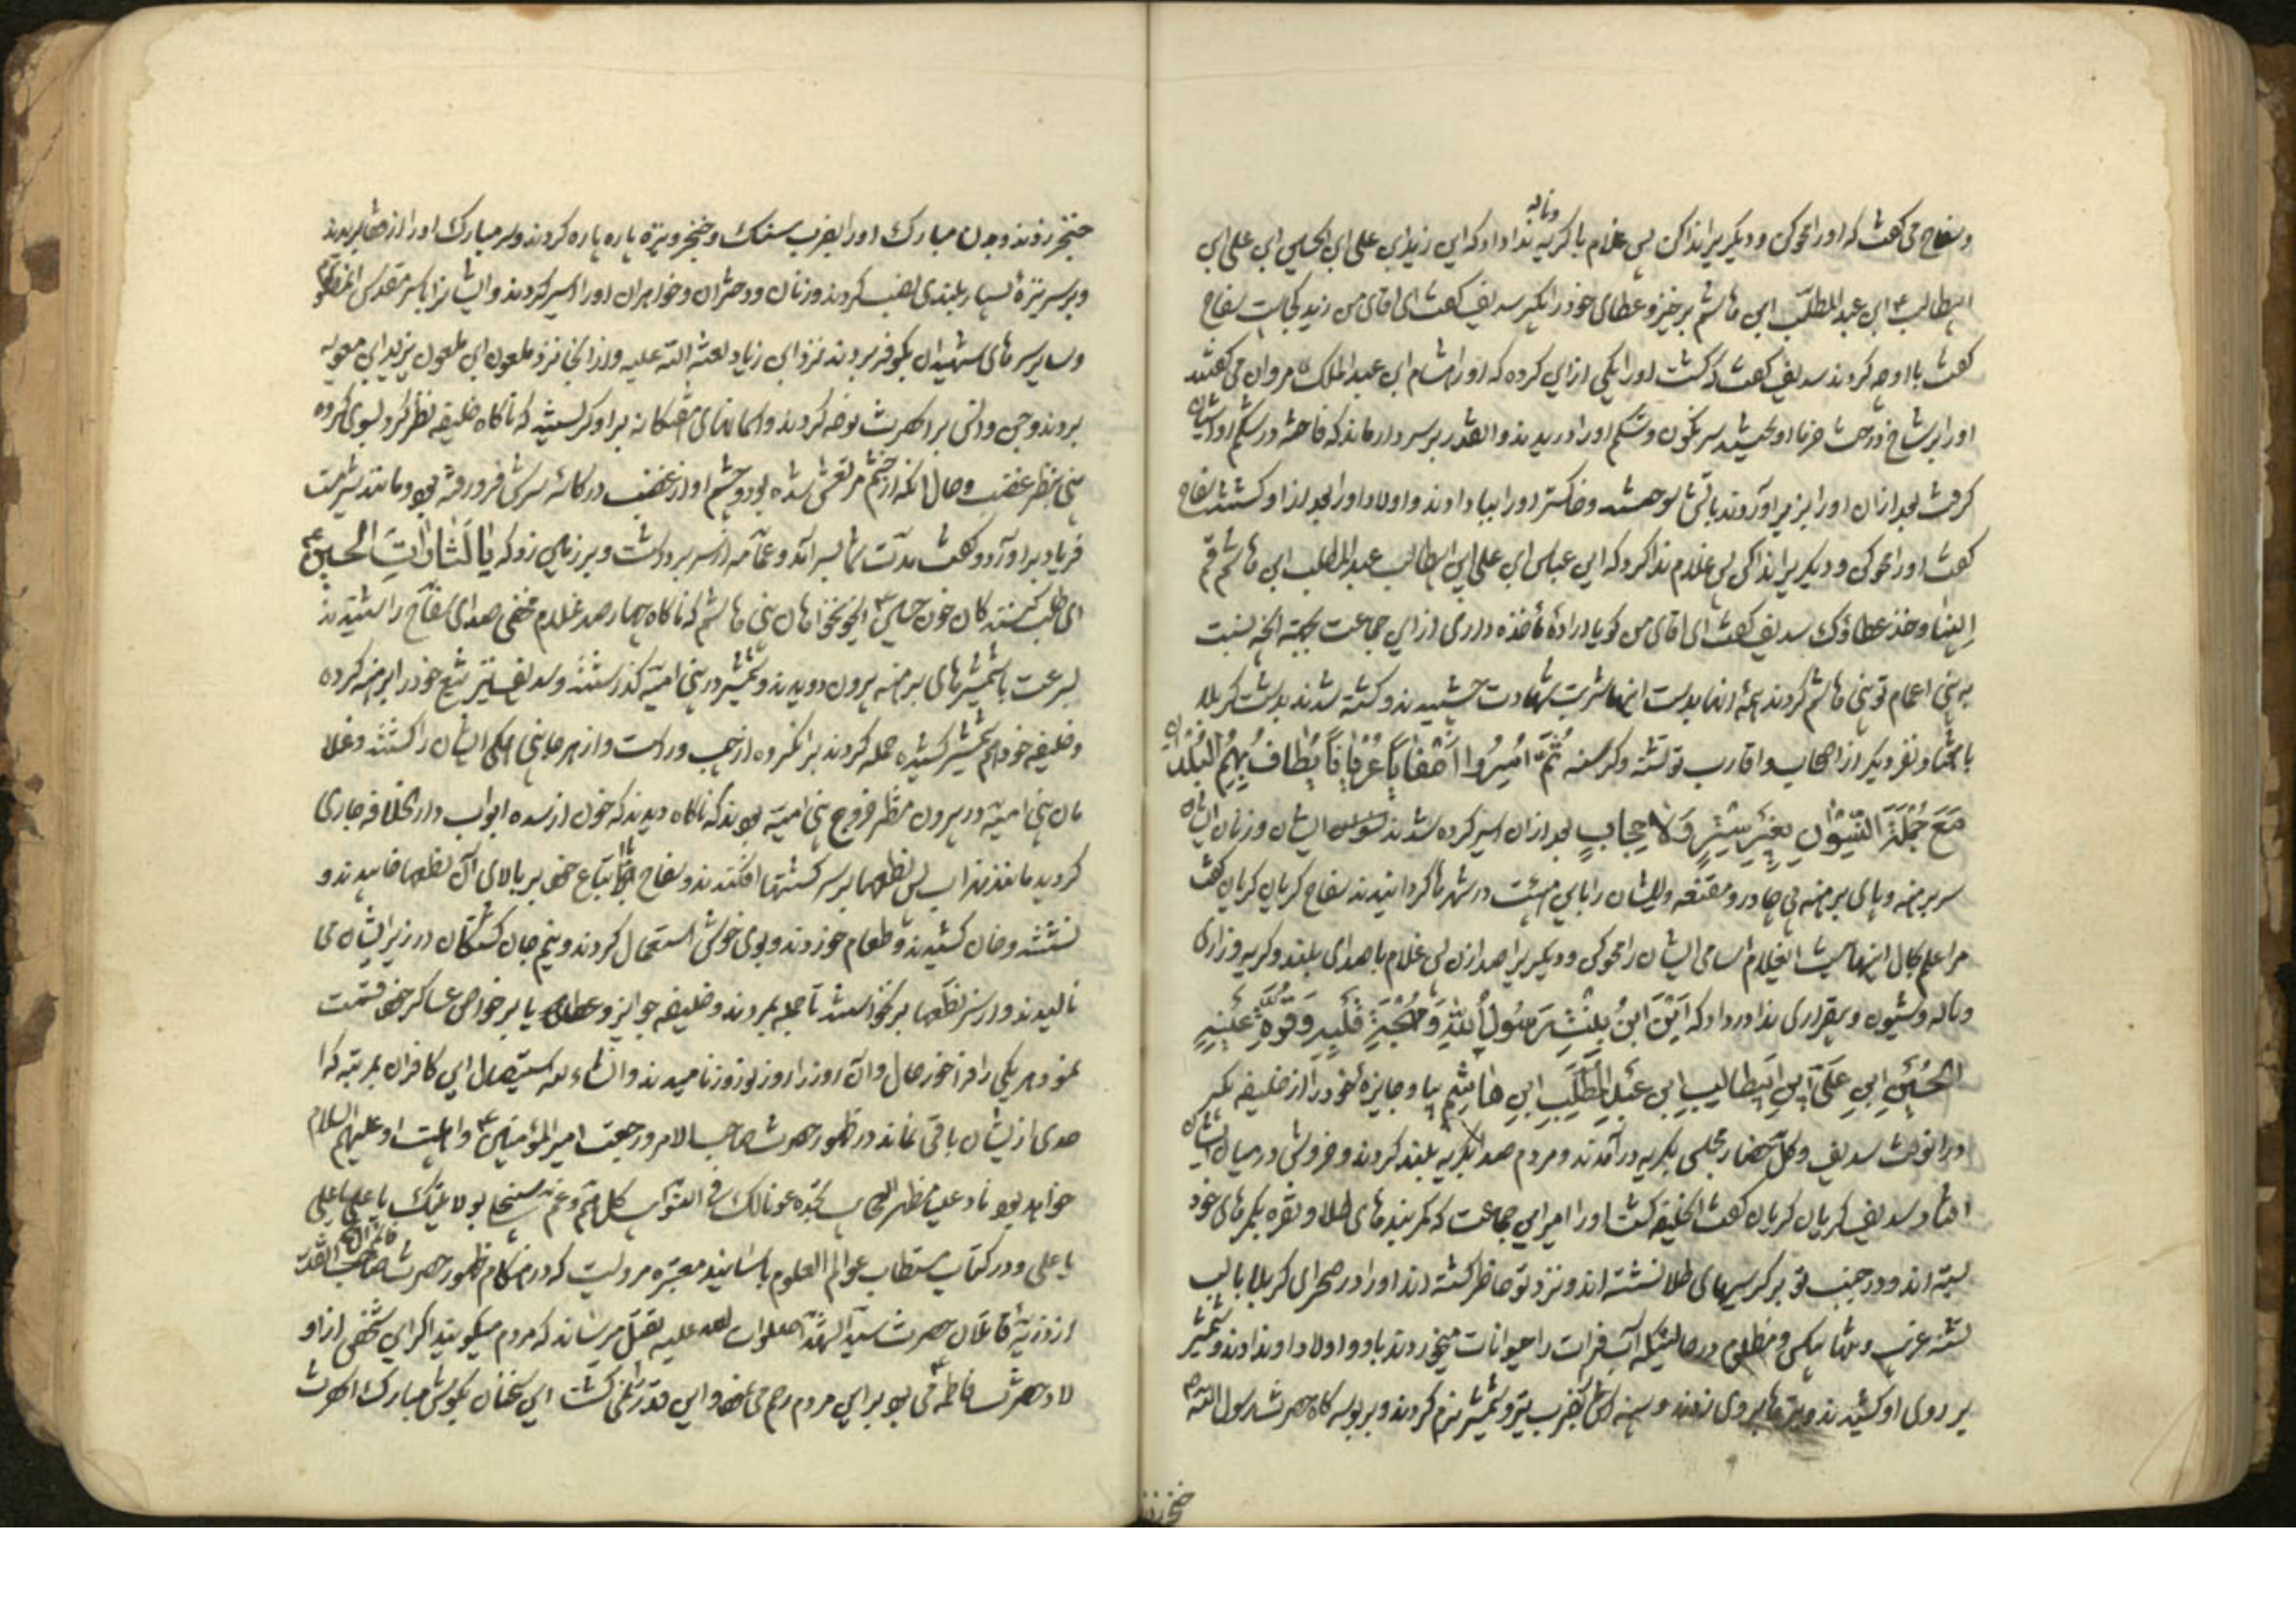 وسفاح می کفت که اورا محو کن و دیکریرا ندا کن پس غلام با کریه و ناله ندا داد که این زید ابن علی ابن الحسین ابن علی ابن
ابیطالب ع ابن عبد المطلب ابن هاشم برخیز و عطای خود را بکیر سدیف کفت ای اقای من زید کجاست سفاح
کفت با او چه کردند سدیف کفت کشت اورا یکی از این کروه که اورا هشام ابن عبد الملک مروان می کفتند
اورا بر شاخ درخت خرما اویختند سرنکون و شکم اورا دریدند و انقدر بر سر دار ماند که فاخته در شکم او اشیان
کرفت بعد ازان اورا بزیر آوردند باتش سوختند و خاکستر اورا بباد دادند و اولاد اورا بعد از او کشتند سفاح
کفت اورا محو کن و دیکریرا ندا کن پس غلام ندا کرد که این عباس ابن علی ابن ابیطالب عبد المطلب ابن هاشم قم
الینا و خذ عطاؤک سدیف کفت ای اقای من کویا اراده مأخذه داری از این جماعت بجهة انچه نسبت
به بنی اعمام تو بنی هاشم کردند همه انها بدست اینها شربت شهادت چشیدند و کشته شدند بدشت کربلا
با هفتاد نفر دیکر از اصحاب و اقارب تو تشنه و کرسنه ثُمَّ اُسِیرُوا اَصْفاباً عُرْیاناً یُطافُ بِهِمُ البُلْدان
مَعَ جُمْلَةِ النِّسْوانِ بِغَیْرِ سِتْرٍ وَلا حِجابٍ بعد ازان اسیر کرده شدند نسوان ایشان و زنان ایشان
سر برهنه و پای برهنه بی چادر و مقنعه و ایشان را باین هیئت در شهرها کردانیدند سفاح کریان کریان کفت
مرا علم بحال اینها نیست ایغلام اسامی ایشان را محو کن و دیکریرا صدا زن پس غلام با صدای بلند و کریه و زاری
و ناله و شیون و بیقراری ندا در داد که اَیْنَ ابْنُ بِنْتِ رَسُولِ اللهِ وَمُهْجَةِ قَلْبِهِ وَقُرَّةِ عَیْنِهِ
الحُسَیْنِ ابنِ عَلیِّ ابنِ ابیطالِبِ ابنِ عَبْدِ المُطَّلِبِ ابنِ هاشِمٍ بیا و جایزه خود را از خلیفه بکیر
در انوقت سدیف و کل حضار مجلس بکریه درآمدند و مردم صدا بکریه بلند کردند و خروش در میان ایشان
افتاد سدیف کریان کریان کفت ایخلیفه کشت اورا امیر این جماعت که کمربندهای طلا و نقره بکمرهای خود
بسته اند و در جنب تو بر کرسیهای طلا نشسته اند و نزد تو حاضر کشته اند اورا در صحرای کربلا با لب
تشنه غریب و تنها بیکس و مظلوم در حالتیکه آب فرات را حیوانات میخوردند باو و اولاد او ندادند و شمشیر
بر روی او کشیدند و نیزها بروی زدند و سینه اش بضرب تیر و شمشیر نرم کردند و بر بوسه کاه حضرت رسول الله ص
خنجر زدند
خنجر زدند و بدن مبارک اورا بضرب سنک و خنجر و نیزه پاره پاره کردند و سر مبارک اورا از قفا بریدند
و بر سر نیزه بسیار بلندی نصب کردند و زنان و دختران و خواهران اورا اسیر کردند و ایشانرا با سر مقدس انمظلوم
و سایر سرهای شهیدان بکوفه بردند نزد ابن زیاد لعنة الله علیه و از انجا نزد ملعون ابن ملعون یزید ابن معویه
بردند و جن و انس بر انحضرت نوحه کردند و اسمانهای هفتکانه بر او کریستند که ناکاه خلیفه نظر کرد بسوی کروه
بنی بنظر غضب و حال انکه از خشم مرتعش شده بود و چشم او از غضب در کاسه سرش فرو رفته بود و مانند شیر مست
فریاد براورد و کفت مدت شما بسر آمد و عمامه از سر برداشت و بر زمین زد که یا لَثاراتَ الحسین ع
ای طلب کنندکان خون حسین ع ایخونخواهان بنی هاشم که ناکاه چهار صد غلام مخفی صدای سفاح را شنیدند
بسرعت با شمشیرهای برهنه بیرون دویدند و شمشیر در بنی امیه کذاشتند و سدیف نیز تیغ خود را برهنه کرده
و خلیفه خود هم شمشیر کشیده حمله کردند بر انکروه از چپ و راست و از هر جانبی همکی ایشان را کشتند و غلا
مان بنی امیه در بیرون منتظر خروج بنی امیه بودند که ناکاه دیدند که خون از سده ابواب دار الخلافه جاری
کردید مانند نهر اب پس نطعها بر سر کشتها افکندند و سفاح با اتباع خود بر بالای آن نطعها خابیدند و
نشستند و خان کشیدند و طعام خوردند و بوی خوش استعمال کردند و نیم جان کشتکان در زیر ایشان می
نالیدند و از سر نطعها برنخواستند تا جمله بمردند و خلیفه جوایز و عطاها را بر خواص عساکر خود قسمت
نمود و هر یکی را فراخور حال و آن روز را روز نوروز نامیدند و انشاء الله استیصال این کافران بمرتبه که ا
حدی از ایشان باقی نماند در ظهور حضرت صاحب الامر و رجعت امیر المؤمنین ع و اهلبیت او علیهم السلام
خواهد بود ناد علیا مظهر العجایب تجده عونا لک فی النوائب کل هم و غم سینجلی بولایتک یا علی یا علی
یا علی و در کتاب مستطاب عوالم العلوم باسانید معتبره مرویست که در هنکام ظهور حضرت صاحب القدر
از ذریه قاتلان حضرت سید الشهدا صلوات الله علیه بقتل میرساند که مردم میکویند اکر این شخص از او
لاد حضرت فاطمه ع می بود بر این مردم رحم می نمود و این قدر نمی کشت این سخنان بکوش مبارک انحضرت